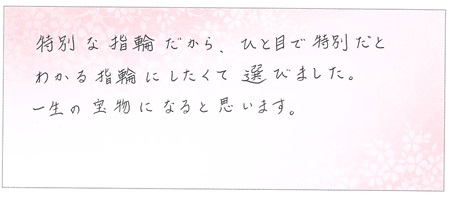 特別な指輪だから、ひと目で特別だと
わかる指輪にしたくて選びました。
一生の宝物になると思います。